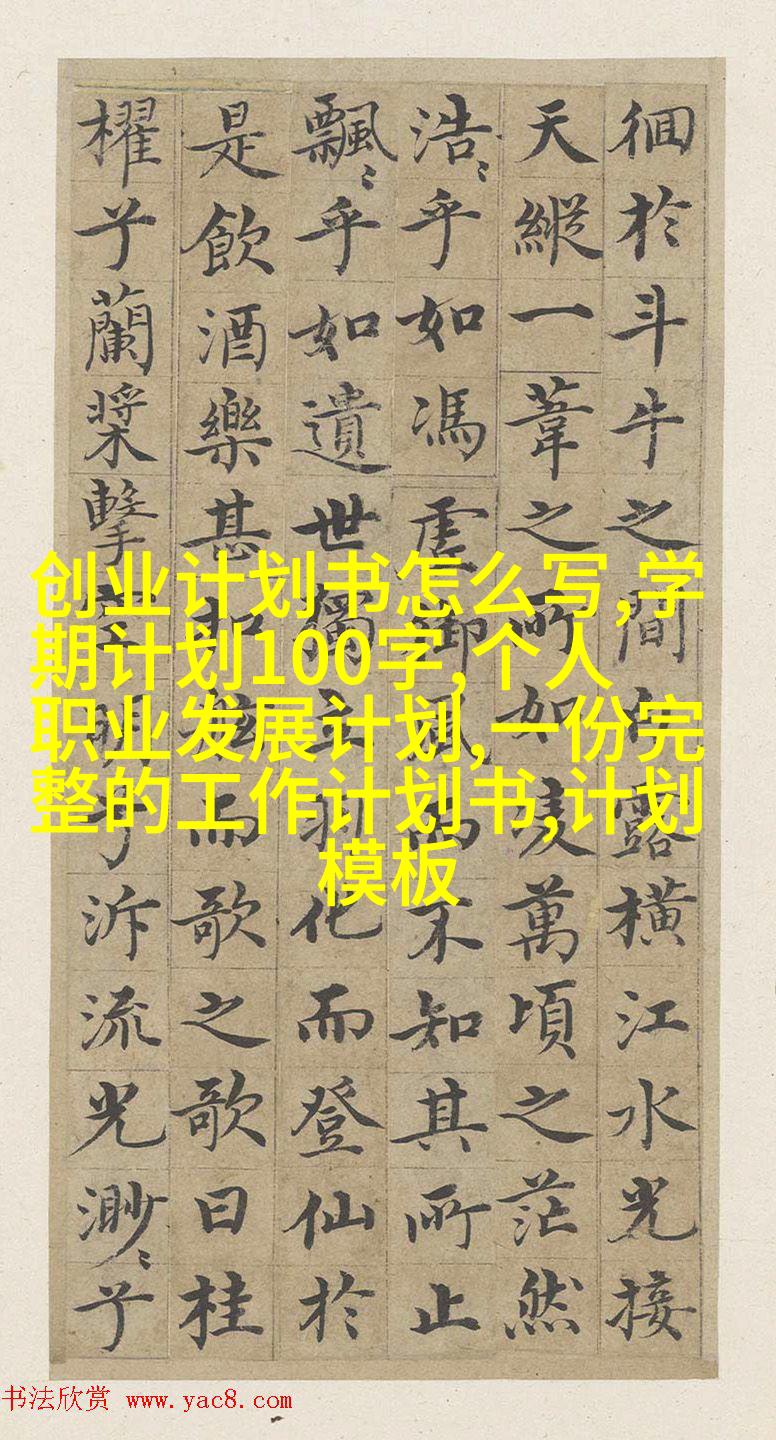 徊於斗牛之間白露橫江水光接
天縱一葦之所如凌萬頃之茫然
浩〻乎如馮虛御風而不知其所止
飄〻乎如遺世獨立羽化而登仙於
是飲酒樂甚扣舷而歌之歌曰桂
櫂兮蘭槳擊空明兮泝流光渺〻兮
创业计划书怎么写,学
期计划100字,个人
职业发展计划,一份完
整的工作计划书,计划
模板
书法欣赏 www.yac8.com